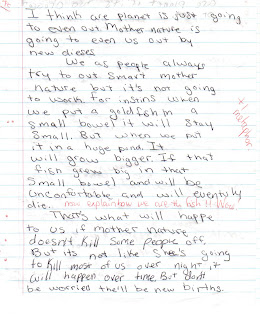 I think are planet is just going
to even out. Mother nature is
going to even us out by
new dieses
We as people always
try to out smart mother
nature but it's not going
to work for instins when
we put a goldfish in a
small bowel it will stay
small. But when we put
it in a huge pond. It
will grow bigger. If that
fish grew big in that
small bowel and will be
unconfortable and will eventully
die. now explain how we are the fish &
Thats what will happe
to us if mother nature
doesn't kill some people off.
But its not like She's going
to kill most of us over night it
will happen over time. But don't
be worried thell be new births.